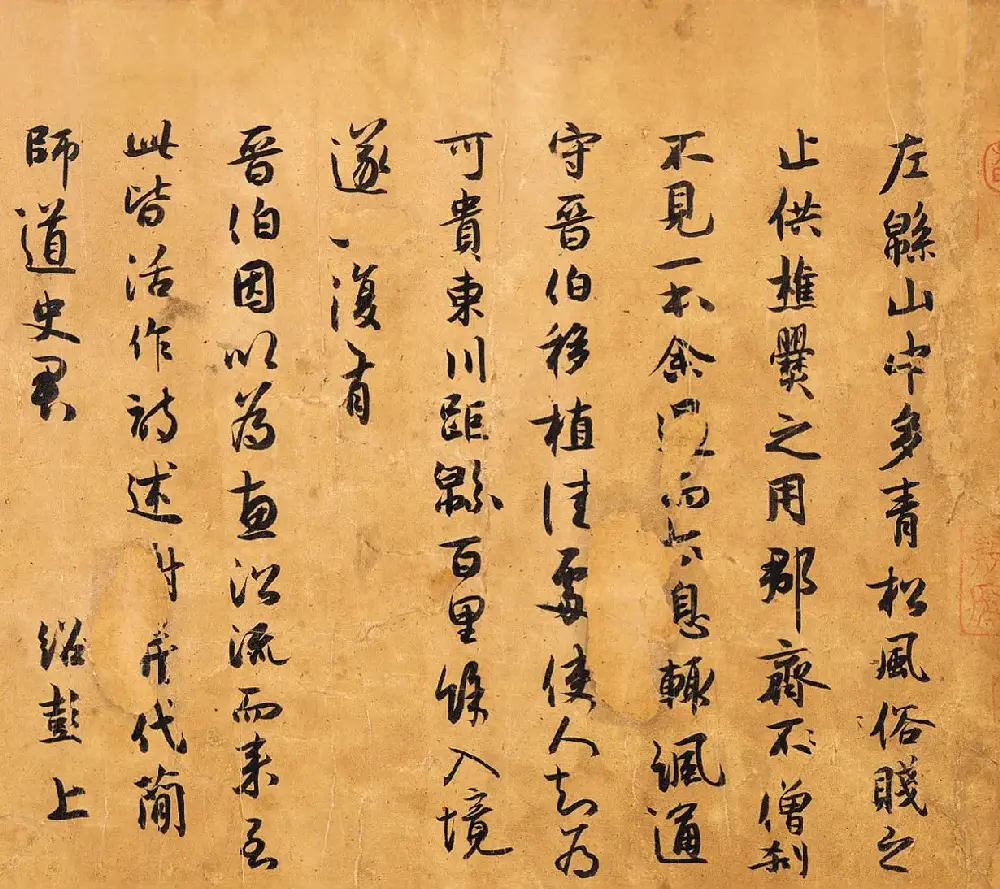 左緜山中多青松風俗賤之
止供樵爨之用郡齋不僧刹
不見一本余過而太息輒諷通
守晉伯移植佳處使人知為
可貴東川距緜百里餘入境
遂一復有
晉伯因以為惠沿流而來至
此皆活作詩述代簡
師道史君 紹彭上